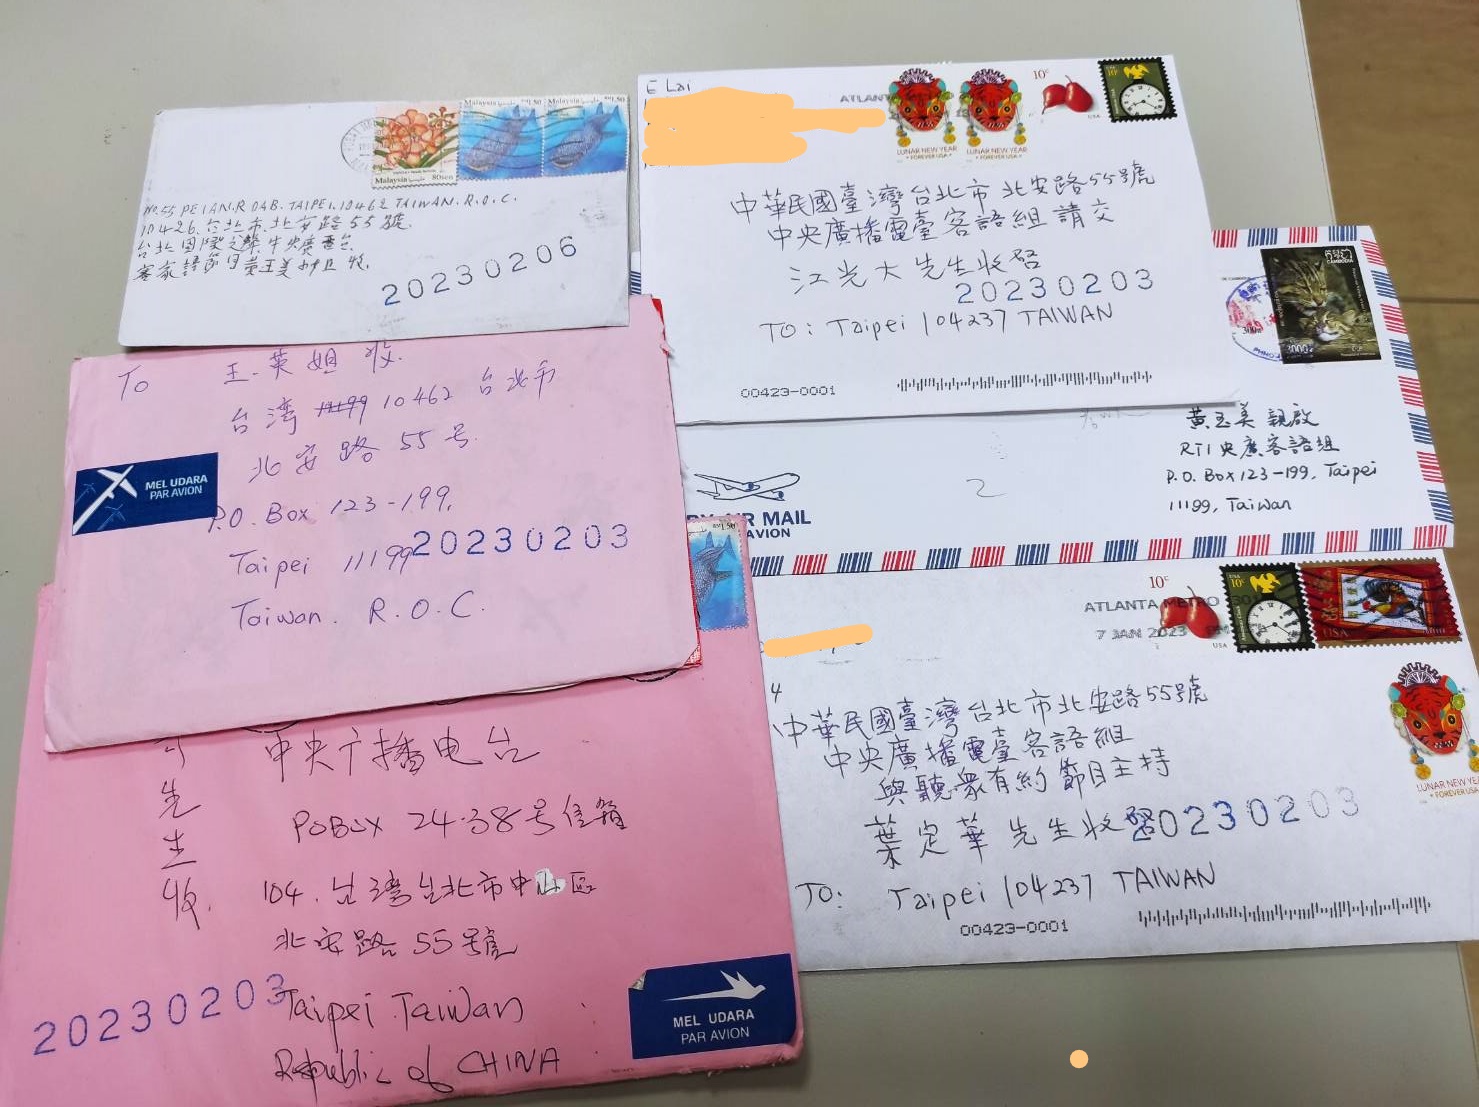 Malaysia
80sen
Malaysia
RM1.50
Malaysia
RM1.50
NO.55 PEIAN.ROAB.TAIPEI.10462 TAIWAN.R.O.C.
10426.台北市.北安路55號.
台北國際之聲中央廣電台
客家語節目黃玉美小姐收.
20230206
E Lai
ATLANTA
LUNAR NEW YEAR
• FOREVER USA •
LUNAR NEW YEAR
• FOREVER USA •
10c
USA
USA
10c
中華民國臺灣台北市北安路55號
中央廣播電臺客語組請交
江光大先生收啓
20230203
TO: Taipei 104237 TAIWAN
00423-0001
To
王.英姐 收.
台湾 11199 10462 台北市
北安路 55号.
P.O. Box 123-199,
Taipei 11199
20230203
Taiwan. R.O.C.
MEL UDARA
PAR AVION
CAMBODIA
3000
黃玉美親啟
RTI央廣客語組
P.O. Box 123-199, Taipei
11199, Taiwan
2
BY AIR MAIL
PAR AVION
RM1.50
先生收.
中央广播电台
POBOX 24-38号信箱
104.台湾台北市中山区
北安路 55號
20230203
Taipei Taiwan
Republic of CHINA
MEL UDARA
PAR AVION
10c
USA
USA
10c
USA
ATLANTA METRO 30
7 JAN 2023
LUNAR NEW YEA
• FOREVER USA
4
中華民國臺灣台北市北安路55號
中央廣播電臺客語組
與聽眾有約 節目主持
葉定華先生收啓
20230203
TO: Taipei 104237 TAIWAN
00423-0001